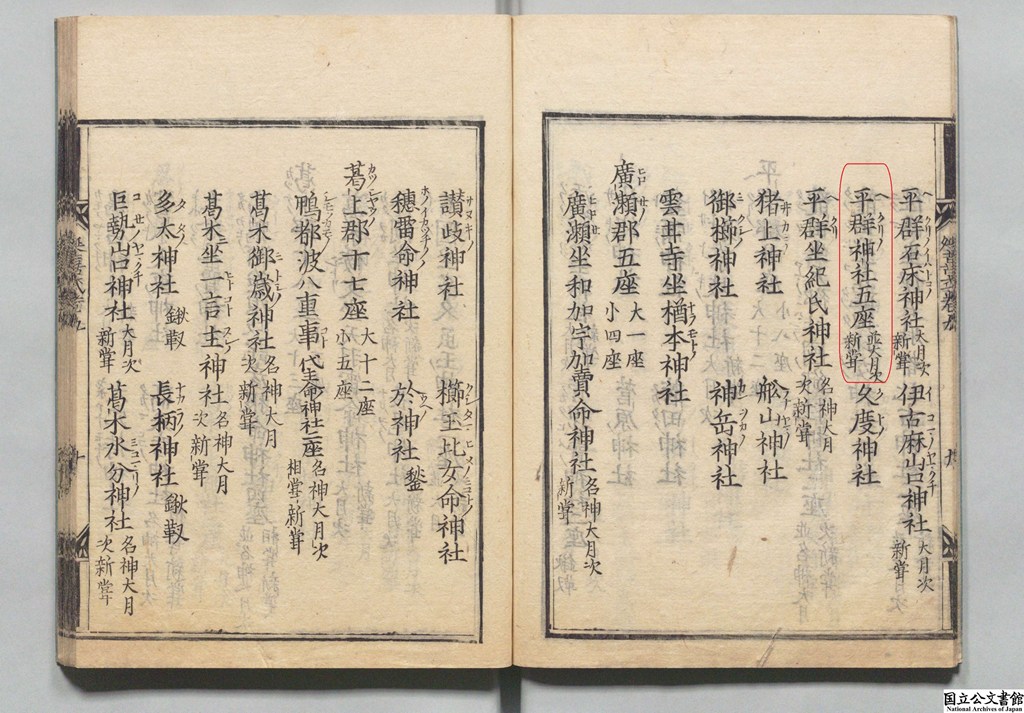 平群石床神社大月次新甞 伊古麻山口神社大月次新甞
平群神社五座並大月次新甞 久度神社
平群坐紀氏神社名神大月次新甞 舩山神社
猪上神社
御櫛神社 神岳神社
雲甘寺坐楢本神社
廣瀬郡五座大一座小四座
廣瀬坐和加宇加賣命神社名神大月次新甞
讃岐神社 櫛玉比女命神社
穗雷命神社 於神社鍫
葛上郡十七座大十二座小五座
鴨都波八重事代主命神社二座名神大月次相甞新甞
葛木御歳神社名神大月次新甞
葛木坐一言主神社名神大月次新甞
多太神社鍬靫 長柄神社鍬靫
巨勢山口神社大月次新甞 葛木水分神社名神大月次新甞
国立公文書館
National Archives of Japan